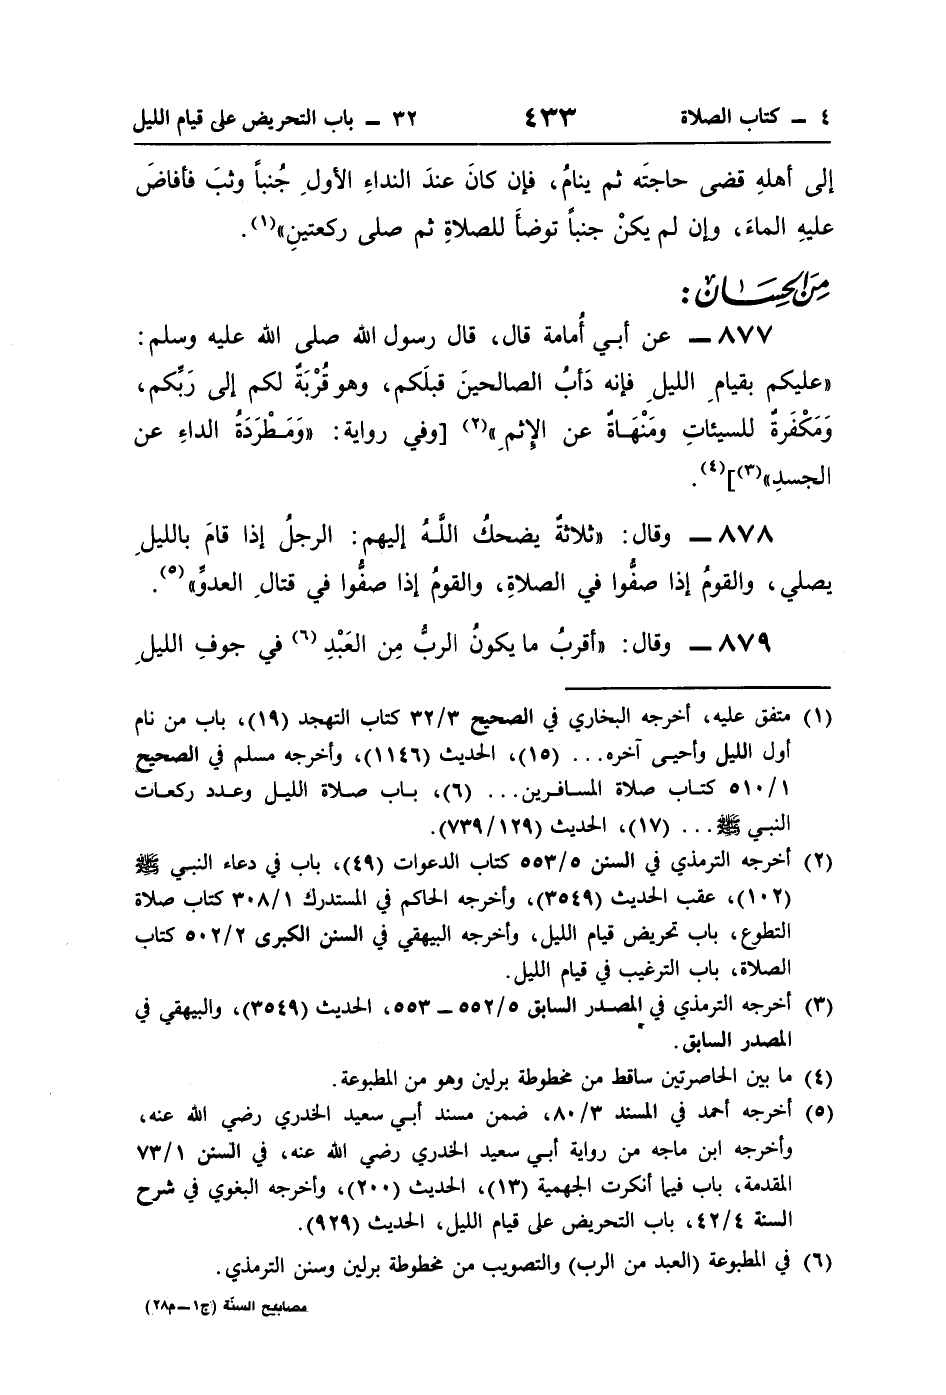 ٤ ــ كتاب الصلاة ٤٣٣ ٣٢ ــ باب التحريض على قيام الليل
إلى أهلهِ قضى حاجتَه ثم ينامُ، فإن كانَ عندَ النداءِ الأولِ جُنباً وثبَ فأفاضَ
عليهِ الماءَ، وإن لم يكنْ جنباً توضأَ للصلاةِ ثم صلى ركعتينِ»(١).
مِنَ الحِسَان :
٨٧٧ ــ عن أبي أُمامة قال، قال رسول الله صلى الله عليه وسلم:
«عليكم بقيامِ الليلِ فإنه دَأبُ الصالحينَ قبلَكم، وهو قُرْبَةٌ لكم إلى رَبِّكم،
وَمَكْفَرةٌ للسيئاتِ ومَنْهَاةٌ عن الإِثمِ»(٢) [وفي رواية: «وَمَطْرَدَةُ الداءِ عن
الجسدِ»(٣)](٤).
٨٧٨ ــ وقال: «ثلاثةٌ يضحكُ اللَّهُ إليهم: الرجلُ إذا قامَ بالليلِ
يصلي، والقومُ إذا صفُّوا في الصلاةِ، والقومُ إذا صفُّوا في قتالِ العدوِّ»(٥).
٨٧٩ ــ وقال: «أقربُ ما يكونُ الربُّ مِن العَبْدِ(٦) في جوفِ الليلِ
(١) متفق عليه، أخرجه البخاري في الصحيح ٣٢/٣ كتاب التهجد (١٩)، باب من نام
أول الليل وأحيى آخره... (١٥)، الحديث (١١٤٦)، وأخرجه مسلم في الصحيح
٥١٠/١ كتاب صلاة المسافرين... (٦)، باب صلاة الليل وعدد ركعات
النبي ﷺ... (١٧)، الحديث (٧٣٩/١٢٩).
(٢) أخرجه الترمذي في السنن ٥٥٣/٥ كتاب الدعوات (٤٩)، باب في دعاء النبي ﷺ
(١٠٢)، عقب الحديث (٣٥٤٩)، وأخرجه الحاكم في المستدرك ٣٠٨/١ كتاب صلاة
التطوع، باب تحريض قيام الليل، وأخرجه البيهقي في السنن الكبرى ٥٠٢/٢ كتاب
الصلاة، باب الترغيب في قيام الليل.
(٣) أخرجه الترمذي في المصدر السابق ٥٥٢/٥ ــ ٥٥٣، الحديث (٣٥٤٩)، والبيهقي في
المصدر السابق.
(٤) ما بين الحاصرتين ساقط من مخطوطة برلين وهو من المطبوعة.
(٥) أخرجه أحمد في المسند ٨٠/٣، ضمن مسند أبي سعيد الخدري رضي الله عنه،
وأخرجه ابن ماجه من رواية أبي سعيد الخدري رضي الله عنه، في السنن ٧٣/١
المقدمة، باب فيما أنكرت الجهمية (١٣)، الحديث (٢٠٠)، وأخرجه البغوي في شرح
السنة ٤٢/٤، باب التحريض على قيام الليل، الحديث (٩٢٩).
(٦) في المطبوعة (العبد من الرب) والتصويب من مخطوطة برلين وسنن الترمذي.
مصابيح السنّة (ج١ــم٢٨)